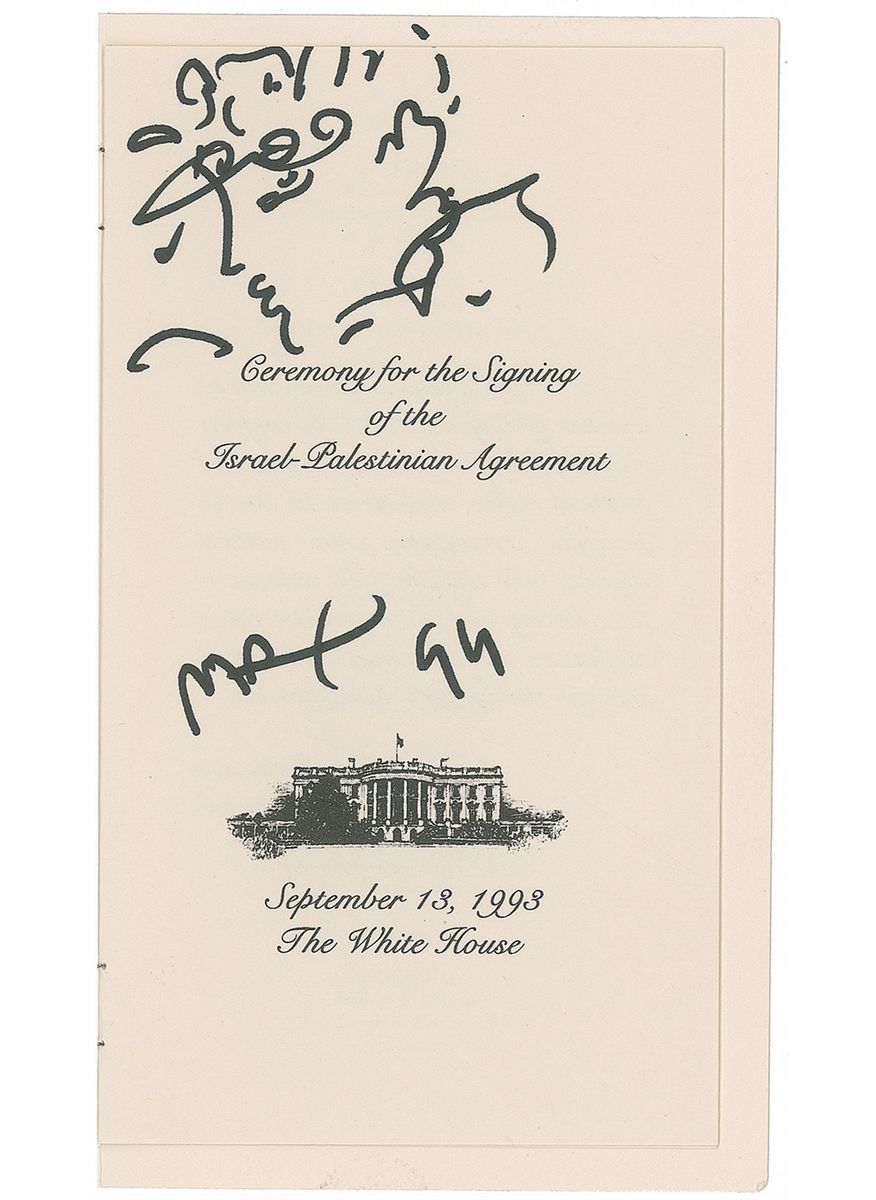 Ceremony for the Signing
of the
Israel-Palestinian Agreement
MAX
September 13, 1993
The White House